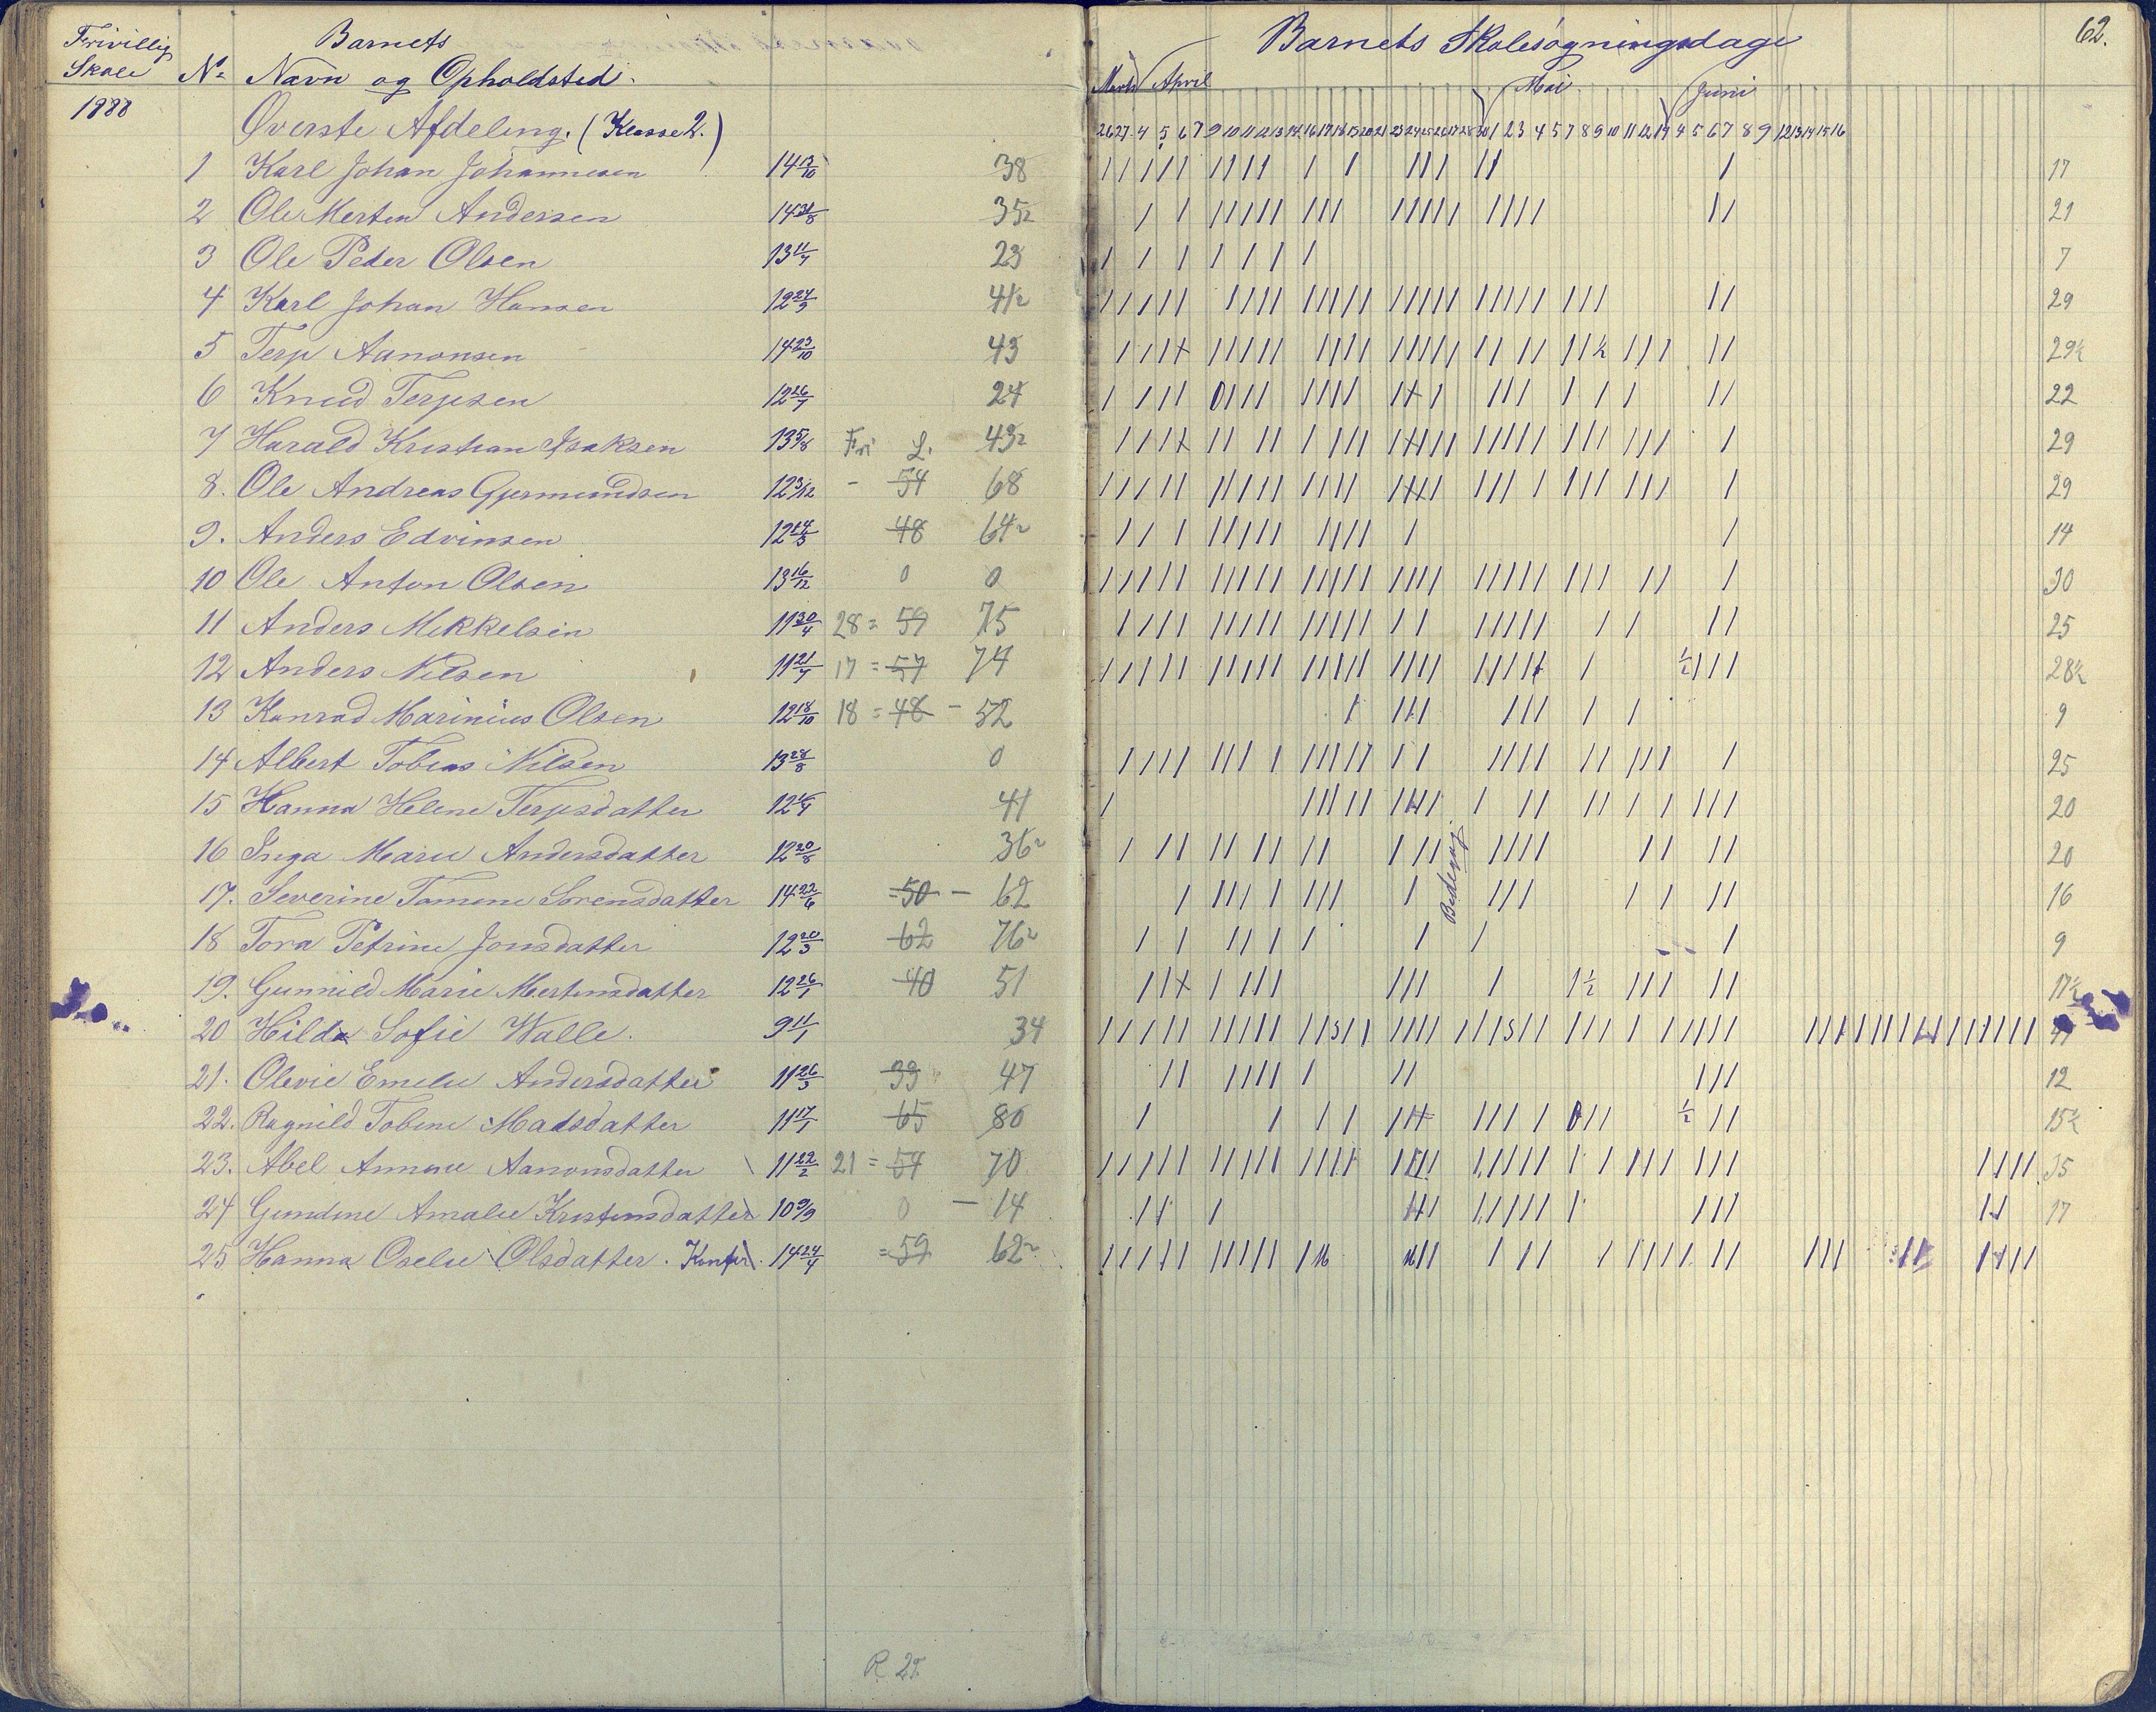 Frivillig Skole Barnets Barnets Skolesøgningsdage 62.
No Navn og Opholdsted. Marts April Mai Juni
1888 Øverste Afdeling. (Klasse 2.) 26 27 4 5 6 7 9 10 11 12 13 14 16 17 18 19 20 21 23 24 25 26 27 28 30 1 2 3 4 5 7 8 9 10 11 12 14 4 5 6 7 8 9 12 13 14 15 16
1 Karl Johan Johannesen 14 13/10 38 17
2 Ole Merten Andersen 14 31/8 35 2 21
3 Ole Peder Olsen 13 11/7 23 7
4 Karl Johan Hansen 12 27/9 41 2 29
5 Terje Aanonsen 14 23/10 43 29½
6 Knud Terjesen 12 26/7 24 22
7 Harald Kristian Isaksen 13 5/8 Fri L. 43 2 29
8. Ole Andreas Gjermundsen 12 3/12 - 54 68 29
9. Anders Edvinsen 12 14/3 48 64 2 14
10 Ole Anton Olsen 13 16/12 0 0 30
11 Anders Mikkelsen 11 30/4 28 = 59 75 25
12 Anders Nilsen 11 21/7 17 = 57 74 28½
13 Konrad Marinius Olsen 12 18/10 18 = 48 - 52 9
14 Albert Tobias Nilsen 13 28/8 0 25
15 Hanna Helene Terjesdatter 12 41 20
16 Inga Marie Andersdatter 12 20/8 36 2 Bededag 20
17. Severine Tomine Sørensdatter 14 22/6 = 50 - 62 16
18 Tora Petrine Jonsdatter 12 20/3 62 76 2 9
19. Gunnild Marie Mertensdatter 12 26/1 40 51 17½
20 Hilda Sofie Walle. 9 11/1 34
21. Olevie Emelie Andersdatter 11 26/3 33 47 12
22. Ragnild Tobine Madsdatter 11 17/1 65 80 15½
23. Abel Annine Aanonsdatter 11 22/2 21 = 54 70 35
24 Gundine Amalie Kristensdatter 10 9/9 0 - 14 17
25 Hanna Oselie Olsdatter. Konfir. 14 24/4 = 59 62 2
R. 25